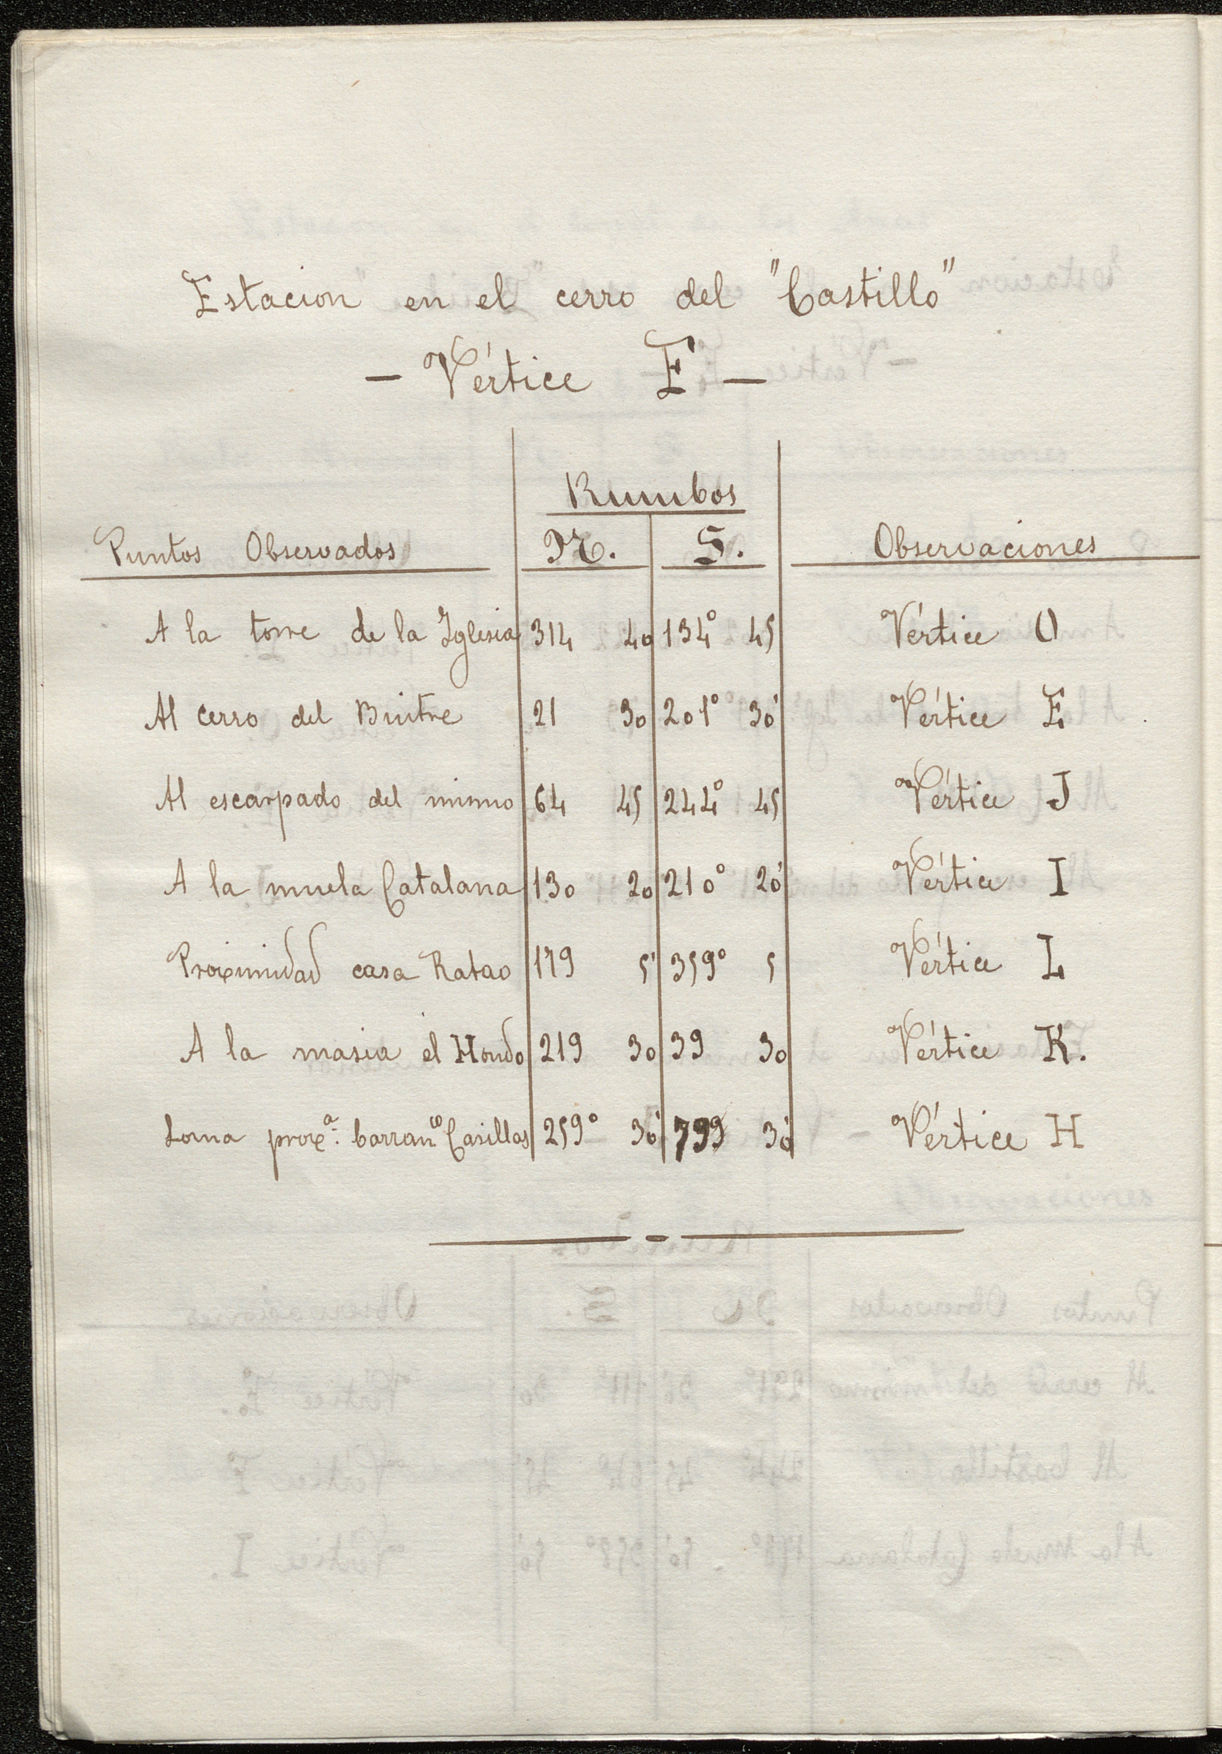 Estacion en el cerro del "Castillo"
— Vértice F —
Rumbos
Puntos Observados N. S. Observaciones
A la torre de la Iglesia 314 40 134° 45 Vértice O
Al cerro del Buitre 21 30 201° 30' Vértice E
Al escarpado del mismo 64 45 244° 45 Vértice J
A la muela Catalana 130 20 210° 20' Vértice I
Proximidad casa Ratao 179 5' 359° 5 Vértice L
A la masia el Hondo 219 30 39 30 Vértice K.
Loma proxª. barranco Casillas 259° 30' 799 30' Vértice H